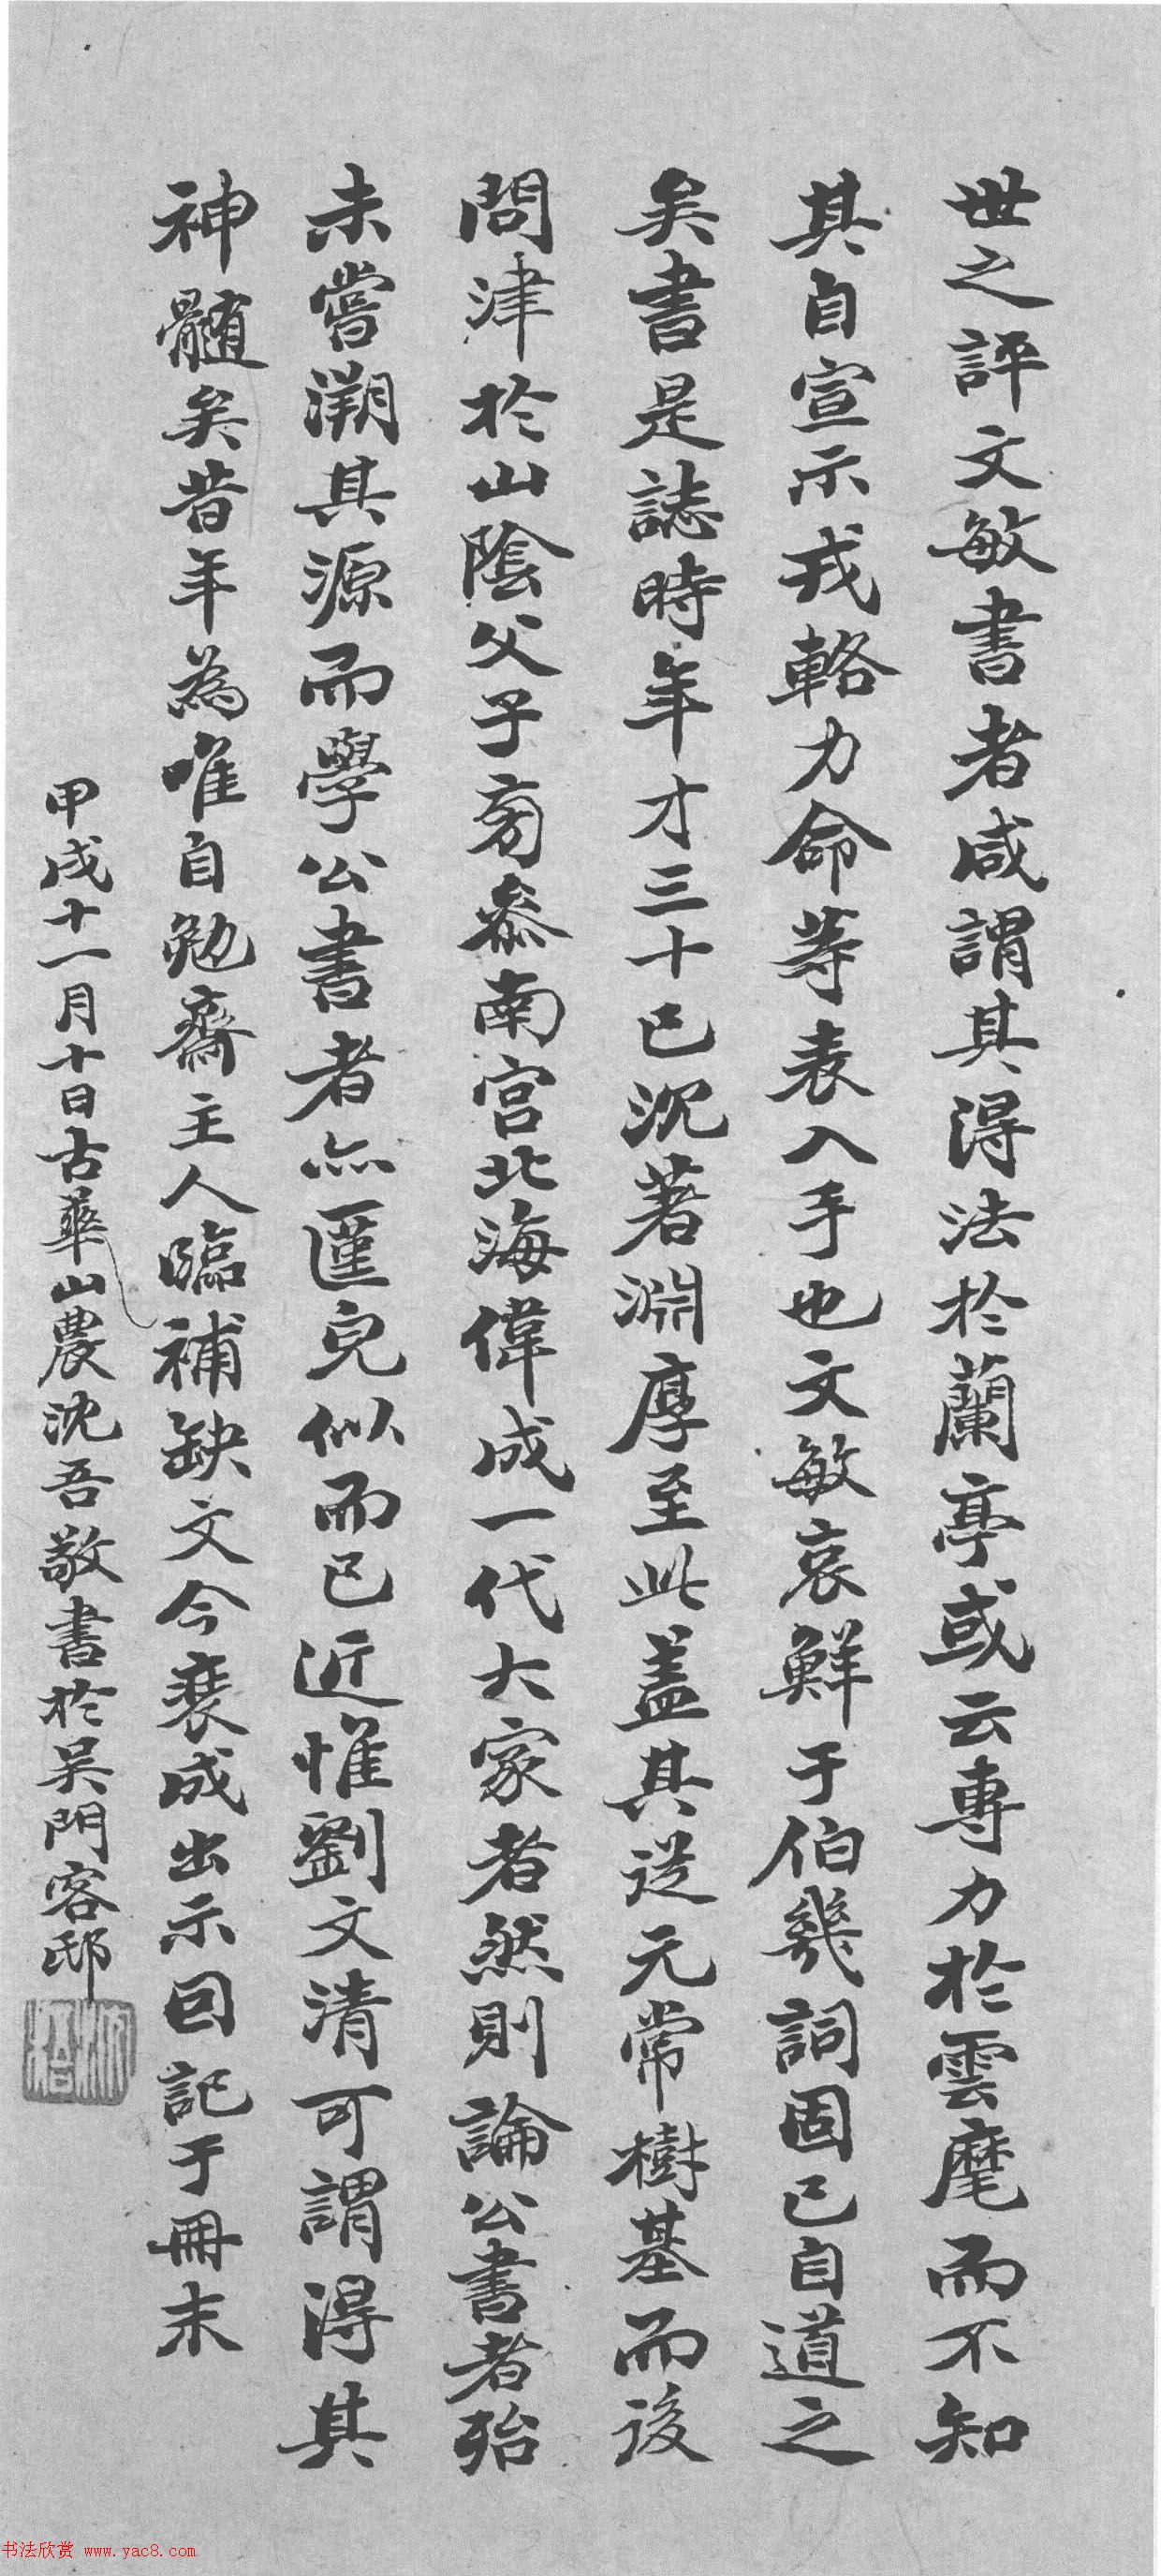 世之評文敏書者咸謂其得法於蘭亭或云專力於雲麾而不知
其自宣示戎輅力命等表入手也文敏哀鮮于伯幾詞固已自道之
矣書是誌時年才三十已沉著淵厚至此蓋其從元常樹基而後
問津於山陰父子旁叅南宮北海偉成一代大家者然則論公書者殆
未嘗溯其源而學公書者亦僅皃似而已近惟劉文清可謂得其
神髓矣昔年為唯自勉齋主人臨補缺文今裝成出示回記于冊末
甲戌十一月十日古華山農沈吾敬書於吴門客邸
书法欣赏 www.yac8.com